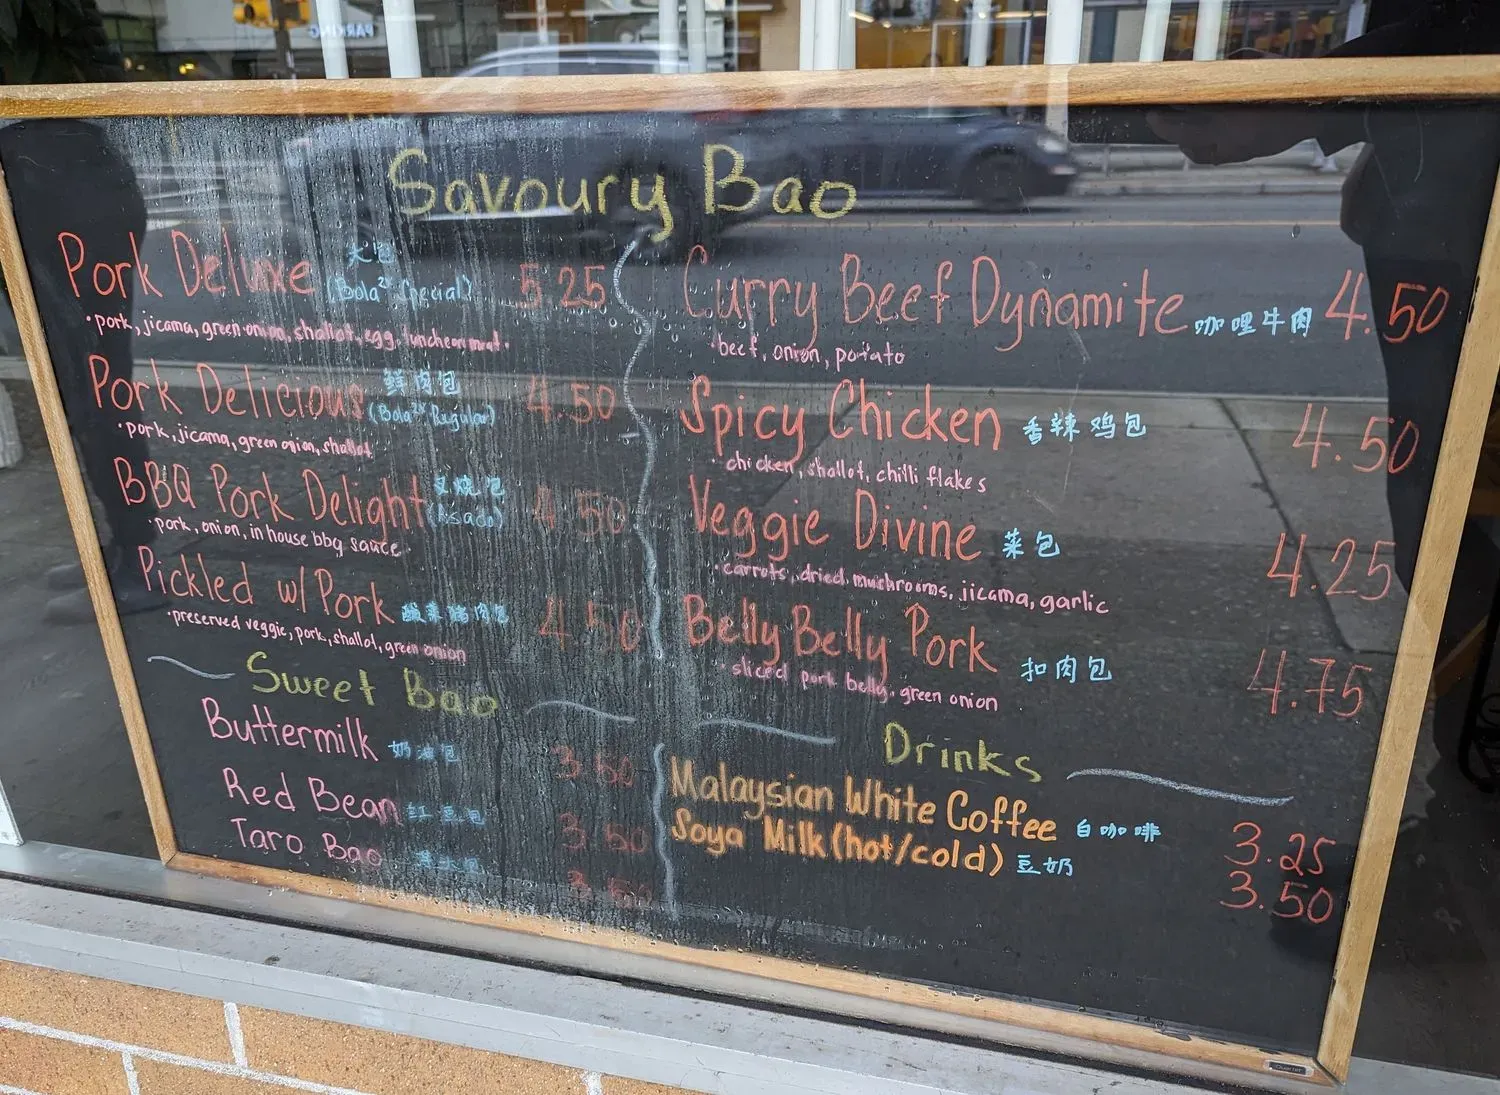 Savoury Bao
Pork Deluxe 大包 (Bola² Special) 5.25
·pork, jicama, green onion, shallot, egg, luncheon meat.
Pork Delicious 鲜肉包 (Bola²x Regular) 4.50
·pork, jicama, green onion, shallot
BBQ Pork Delight 叉烧包 (Asado) 4.50
·pork, onion, in house bbq sauce
Pickled w/ Pork 酸菜猪肉包 4.50
·preserved veggie, pork, shallot, green onion
Curry Beef Dynamite 咖哩牛肉 4.50
·beef, onion, potato
Spicy Chicken 香辣鸡包 4.50
·chicken, shallot, chilli flakes
Veggie Divine 菜包 4.25
·carrots, dried mushrooms, jicama, garlic
Belly Belly Pork 扣肉包 4.75
·sliced pork belly, green onion
Sweet Bao
Buttermilk 奶油包 3.50
Red Bean 红豆包 3.50
Taro Bao 3.50
Drinks
Malaysian White Coffee 白咖啡 3.25
Soya Milk (hot/cold) 豆奶 3.50
Quartet
PARKING